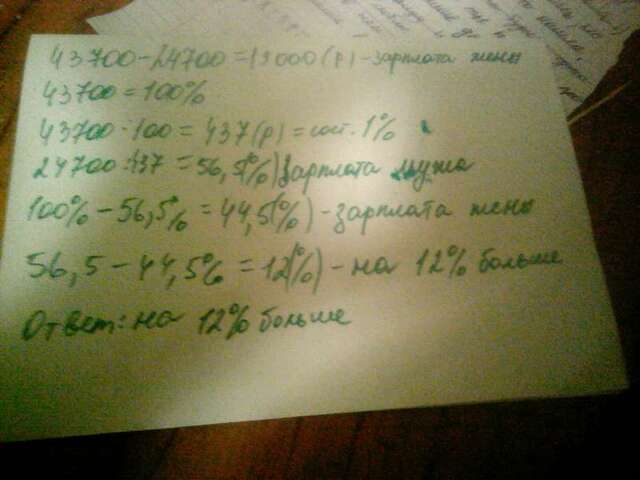 43700-24700=19000(р)-зарплата жены
43700=100%
43700:100=437(р)=сост.1%
24700:437=56,5(%)зарплата мужа
100%-56,5%=44,5(%)-зарплата жены
56,5-44,5%=12(%)-на 12% больше
Ответ:на 12% больше